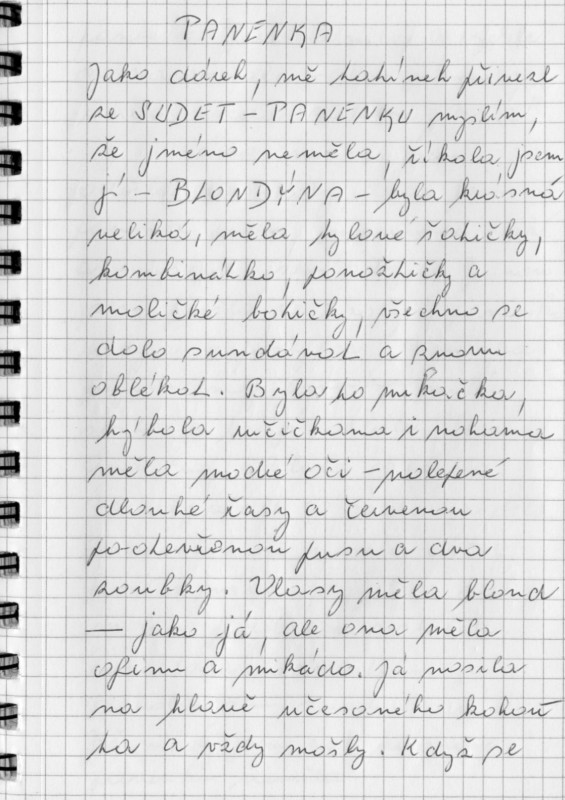 PANENKA
Jako dárek, mě tatínek přivezl
ze SUDET - PANENKU myslím,
že jméno neměla, říkala jsem
jí - BLONDÝNA - byla krásná
veliká, měla bylové šatičky,
kombinátko, ponožtičky a
maličké botičky, všechno se
dalo sundávat a znovu
oblékat. Byla to mrkačka,
hýbala ručičkama i nohama
měla modré oči - nalepené
dlouhé řasy a červenou
po-otevřenou pusu a dva
zoubky. Vlasy měla blond
— jako já, ale ona měla
ofinu a mikádo. Já nosila
na hlavě učesaného kohou
ta a vždy mašly. Když se